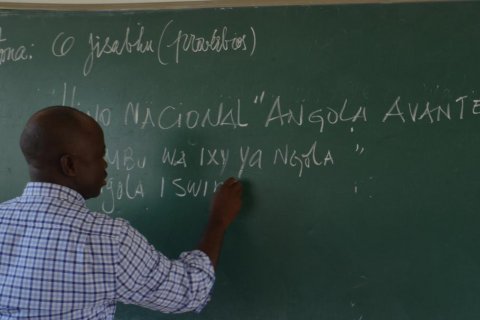 ona: O jisabhu (provérbios)
Hino NACIONAL "ANGOLA AVANTE
MBU WA IXY YA NGOLA "
gola ISWI